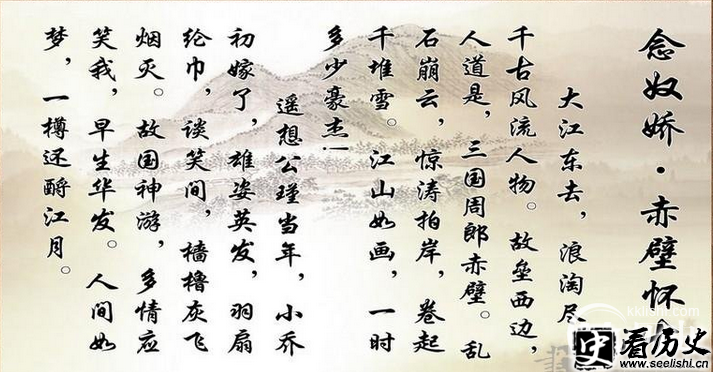 念奴娇·赤壁怀
大江东去，浪淘尽
千古风流人物。故垒西边，
人道是，三国周郎赤壁。乱
石崩云，惊涛拍岸，卷起
千堆雪。江山如画，一时
多少豪杰！
遥想公瑾当年，小乔
初嫁了，雄姿英发，羽扇
纶巾，谈笑间，樯橹灰飞
烟灭。故国神游，多情应
笑我，早生华发。人间如
梦，一樽还酹江月。
kklishi.com
史 看历史
www.seelishi.cn